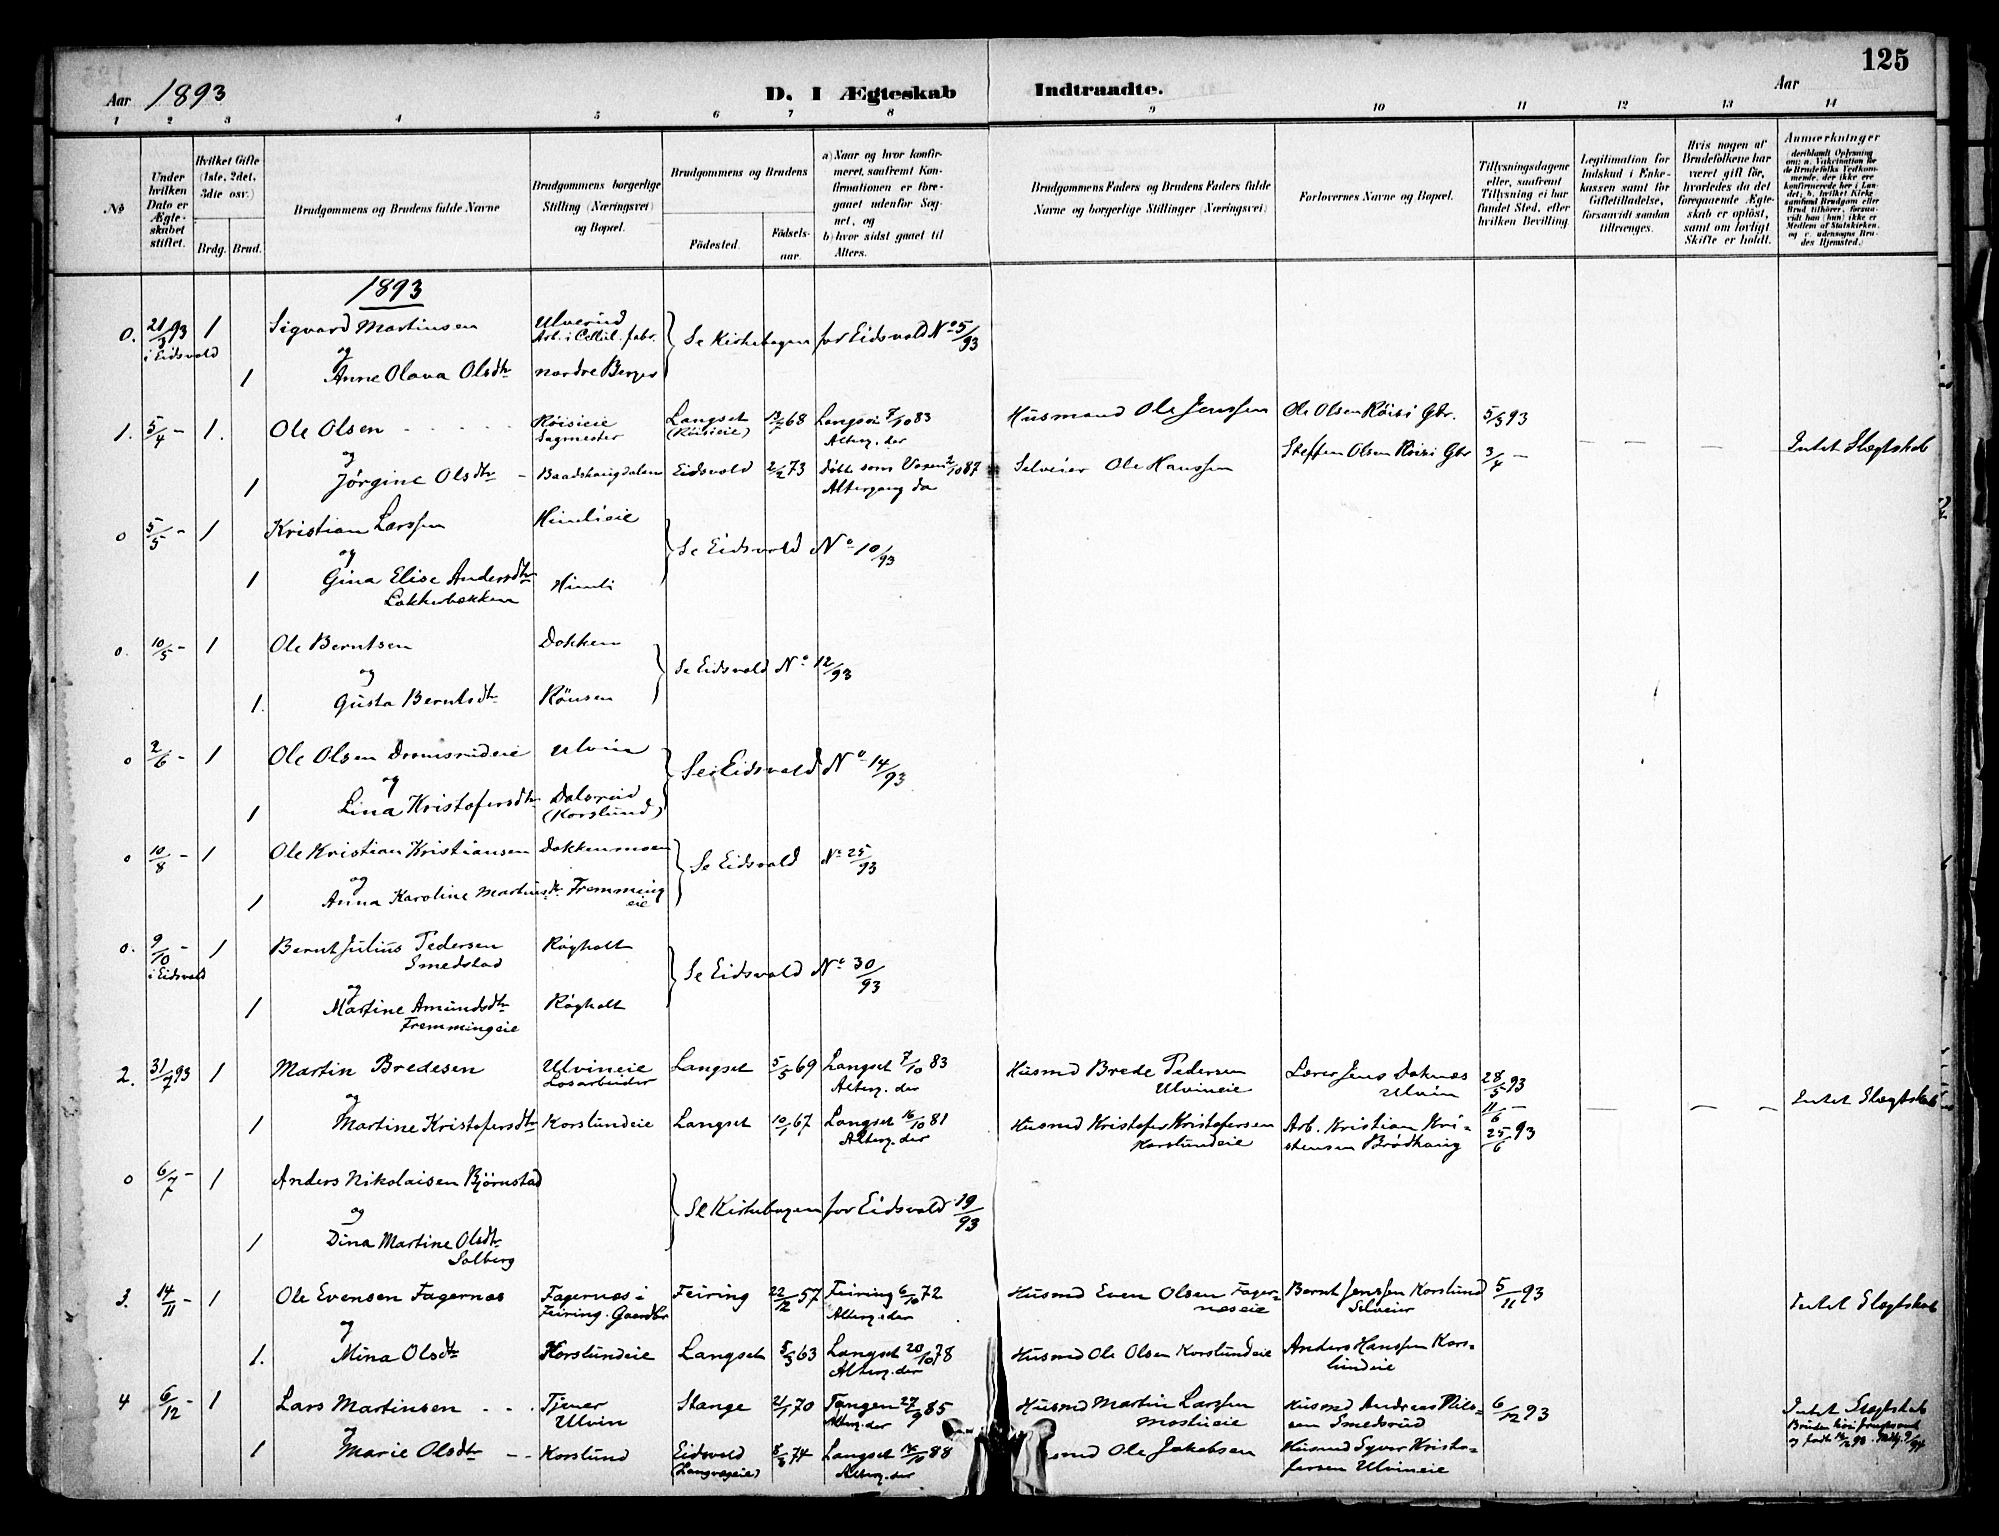 125
Aar 1893
D. I Ægteskab Indtraadte.
Aar
1 2 3 4 5 6 7 8 9 10 11 12 13 14
No
Under hvilken Dato er Ægteskabet stiftet.
Hvilket Gifte (1ste, 2det, 3die osv.)
Brdg. Brud.
Brudgommens og Brudens fulde Navne
Brudgommens borgerlige Stilling (Næringsvei) og Bopæl.
Brudgommens og Brudens
Födested.
Födselsaar.
a) Naar og hvor konfirmeret, saafremt Konfirmationen er foregaaet udenfor Sognet, og
b) hvor sidst gaaet til Alters.
Brudgommens Faders og Brudens Faders fulde Navne og borgerlige Stillinger (Næringsvei)
Forlovernes Navne og Bopæl.
Tillysningsdagene eller, saafremt Tillysning ei har fundet Sted, efter hvilken Bevilling
Legitimation for Indskud i Enkekassen samt for Giftetilladelse, forsaavidt saadan tiltrænges.
Hvis nogen af Brudefolkene har været gift för, hvorledes da det foregaaende Ægteskab er oplöst, samt om lovligt Skifte er holdt.
Anmærkninger
(deriblandt Oplysning om: a. Vakcination for de Brudefolks Vedkommende, der ikke ere konfirmerede her i Landet; b. hvilket Kirkesamfund Brudgom eller Brud tilhörer, forsaavidt han (hun) ikke er Medlem af Statskirken, og c. udensogns Brudes Hjemsted.)
1893
0. 21/3 93 1 Sigvard Martinsen Ulverud
i Eidsvold Arb. i Cellul. fabr. Se Kirkebogen for Eidsvold No 5/93
og
1 Anne Olava Olsdtr nordre Berger
1. 5/4 – 1. Ole Olsen Röisieie Langset 68 Langset 7/10 83 Husmand Ole Jenssen Ole Olsen Röisi Gbr. 5/3 93
Sagmester (Röisieie) Alterg. der
og Steffen Olsen Röisi Gbr 3/4 – – – – Intet Slægtskab
1 Jörgine Olsdtr – Baadshaugdalen Eidsvold 2/2 73 Döbt som Voxen 2/10 87 Selveier Ole Hanssen
Altergang da
0 5/5 – 1 Kristian Larssen Himlieie
og Se Eidsvold No 10/93
1 Gina Elise Andersdtr Himli
Løkkebakken
0. 10/5 – 1 Ole Berntsen Dokken
og Se Eidsvold No 12/93
1. Gusta Berntsdtr Rönsen
0 2/6 – 1 Ole Olsen Ulvin
og Se Eidsvold No 14/93
1 Lina Kristofersdtr
(Korslund)
0 10/8 – 1 Ole Kristian Kristiansen Dokkenmoen
og Se Eidsvold No 25/93
1 Anna Karoline Martinsdtr Fremming
eie
0. 9/10 – 1 Bernt Julius Pedersen Rögholt
i Eidsvold Smedstad
og Se Eidsvold No 30/93
1 Martine Amundsdtr Rögholt
Fremmingeie
2. 31/7 93 1 Martin Bredesen Ulvineie Langset 5/5 69 Langset 7/10 83 Husmd Brede Pedersen Lærer Jens Doknes 28/5 93
Løsarbeider Alterg. der Ulvineie Ulvin 11/6 – Intet Slægtskab
og
1 Martine Kristofersdtr Korslundeie Langset 10/1 67 Langset 16/10 81 Husmd Kristofer Kristofersen Arb. Kristian Kri- 25/6 93
Alterg. der Korslundeie stensen Brödhaug
0 6/7 – 1 Anders Nikolaisen Björnstad
og Se Kirkebogen for Eidsvold 19/93
1 Dina Martine Olsdtr
Solberg
3. 14/11 – 1 Ole Evensen Fagernæs Fagernæs i Feiring 22/12 57 Feiring 6/10 72 Husmd Even Olsen Fager- Bernt Jenssen Korslund 5/11 93
Feiring. Gaardbr Alterg. der næseie Selveier Intet Slægtskab
og
1. Mina Olsdtr Korslundeie Langset 5/3 63 Langset 20/10 78 Husmd Ole Olsen Korslundeie Anders Hanssen Kors-
Alterg. der lundeie
4 6/12 – 1 Lars Martinsen Tjener Stange 21/1 70 Tangen 27/9 85 Husmd Martin Larssen Husmd Andreas Nils- 6/12 93 Intet Slægtskab
Ulvin Alterg. der Mostueeie sen Smedsrud
og
1 Marie Olsdtr – – Korslund Eidsvold 8/3 74 Langset 88 Ole Jakobsen Husmd Syver Kristo-
Alterg. der fersen Ulvineie